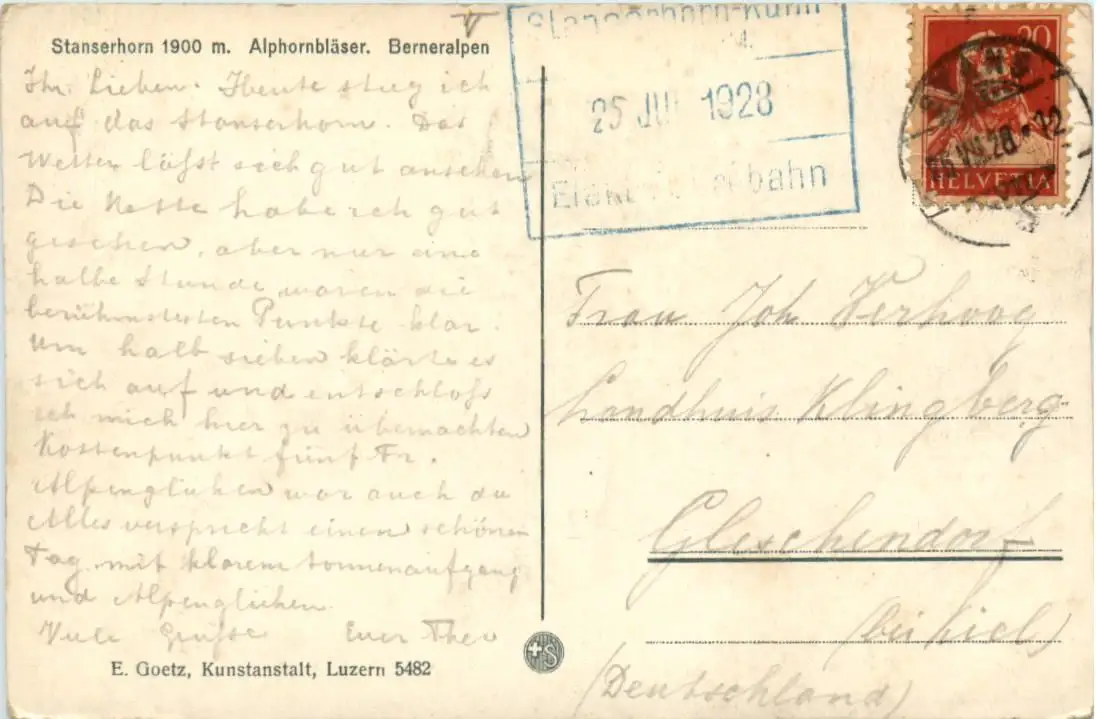 Stanserhorn 1900 m. Alphornbläser. Berneralpen
Ihr Lieben. Heute stieg ich
auf das Stanserhorn. Das
Wetter läßt sich gut ansehen
Die Kette habe ich gut
gesehen, aber nur eine
halbe Stunde waren die
berühmtesten Punkte klar.
Um halb sieben klärte es
sich auf und entschloß
ich mich hier zu übernachten
Kostenpunkt fünf Fr.
Alpenglühen war auch da
Alles verspricht einen schönen
Tag mit klarem Sonnenaufgang
und Alpenglühen.
Viele Grüße Euer Theo
E. Goetz, Kunstanstalt, Luzern 5482
Stanserhorn-Kulm
25 JUL 1928
bahn
20
HELVETIA
STANS
Frau Joh Verhoog
Landhuis Klingberg
Gleschendorf
bei Kiel
(Deutschland)